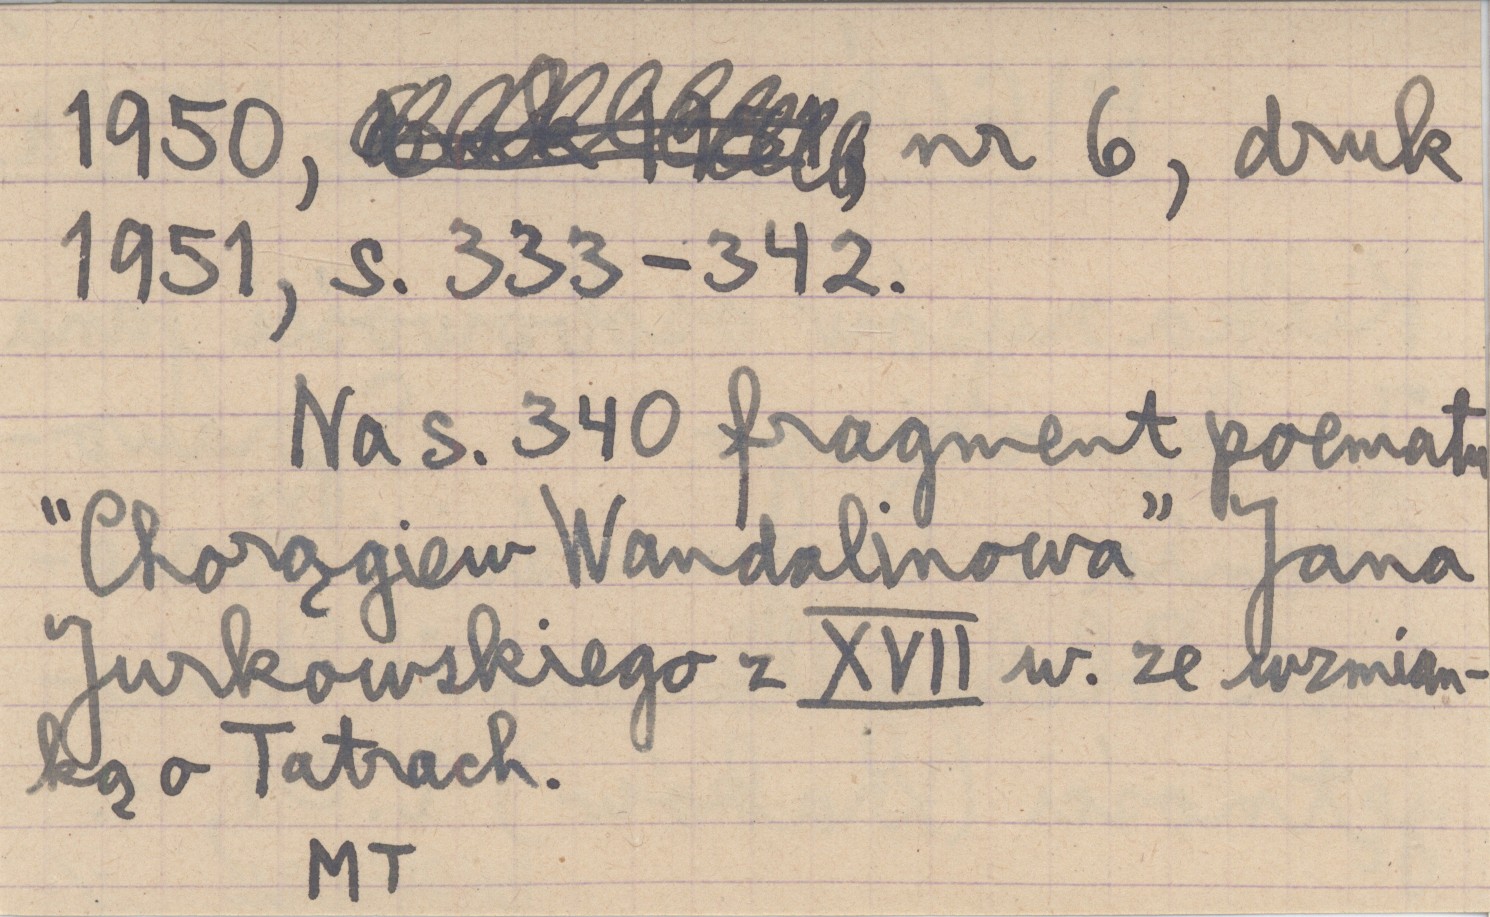 1950, nr 6, druk
1951, s. 333-342.
Na s. 340 fragment poematu
"Chorągiew Wandalinowa" Jana
Jurkowskiego z XVII w. ze wzmian-
ką o Tatrach.
MT